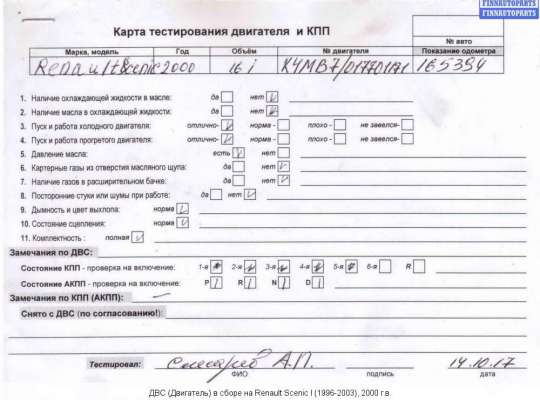 FINNAUTOPARTS
FINNAUTOPARTS
Карта тестирования двигателя и КПП
№ авто
Марка, модель Год Объём № двигателя Показание одометра
Renault Scenic 2000 16 i K4MB7/ 165394
1. Наличие охлаждающей жидкости в масле: да нет
2. Наличие масла в охлаждающей жидкости: да нет
3. Пуск и работа холодного двигателя: отлично- норма - плохо - не завелся-
4. Пуск и работа прогретого двигателя: отлично- норма - плохо - не завелся-
5. Давление масла: есть нет
6. Картерные газы из отверстия масляного щупа: да нет
7. Наличие газов в расширительном бачке: да нет
8. Посторонние стуки или шумы при работе: да нет
9. Дымность и цвет выхлопа: норма
10. Состояние сцепления: норма
11. Комплектность : полная
Замечания по ДВС:
Состояние КПП - проверка на включение: 1-я 2-я - 3-я - 4-я - 5-я - 6-я R
Состояние АКПП - проверка на включение: P R N D
Замечания по КПП (АКПП):
Снято с ДВС (по согласованию!):
Тестировал: А.П. 14.10.17
ФИО подпись дата
ДВС (Двигатель) в сборе на Renault Scenic I (1996-2003), 2000 г.в.